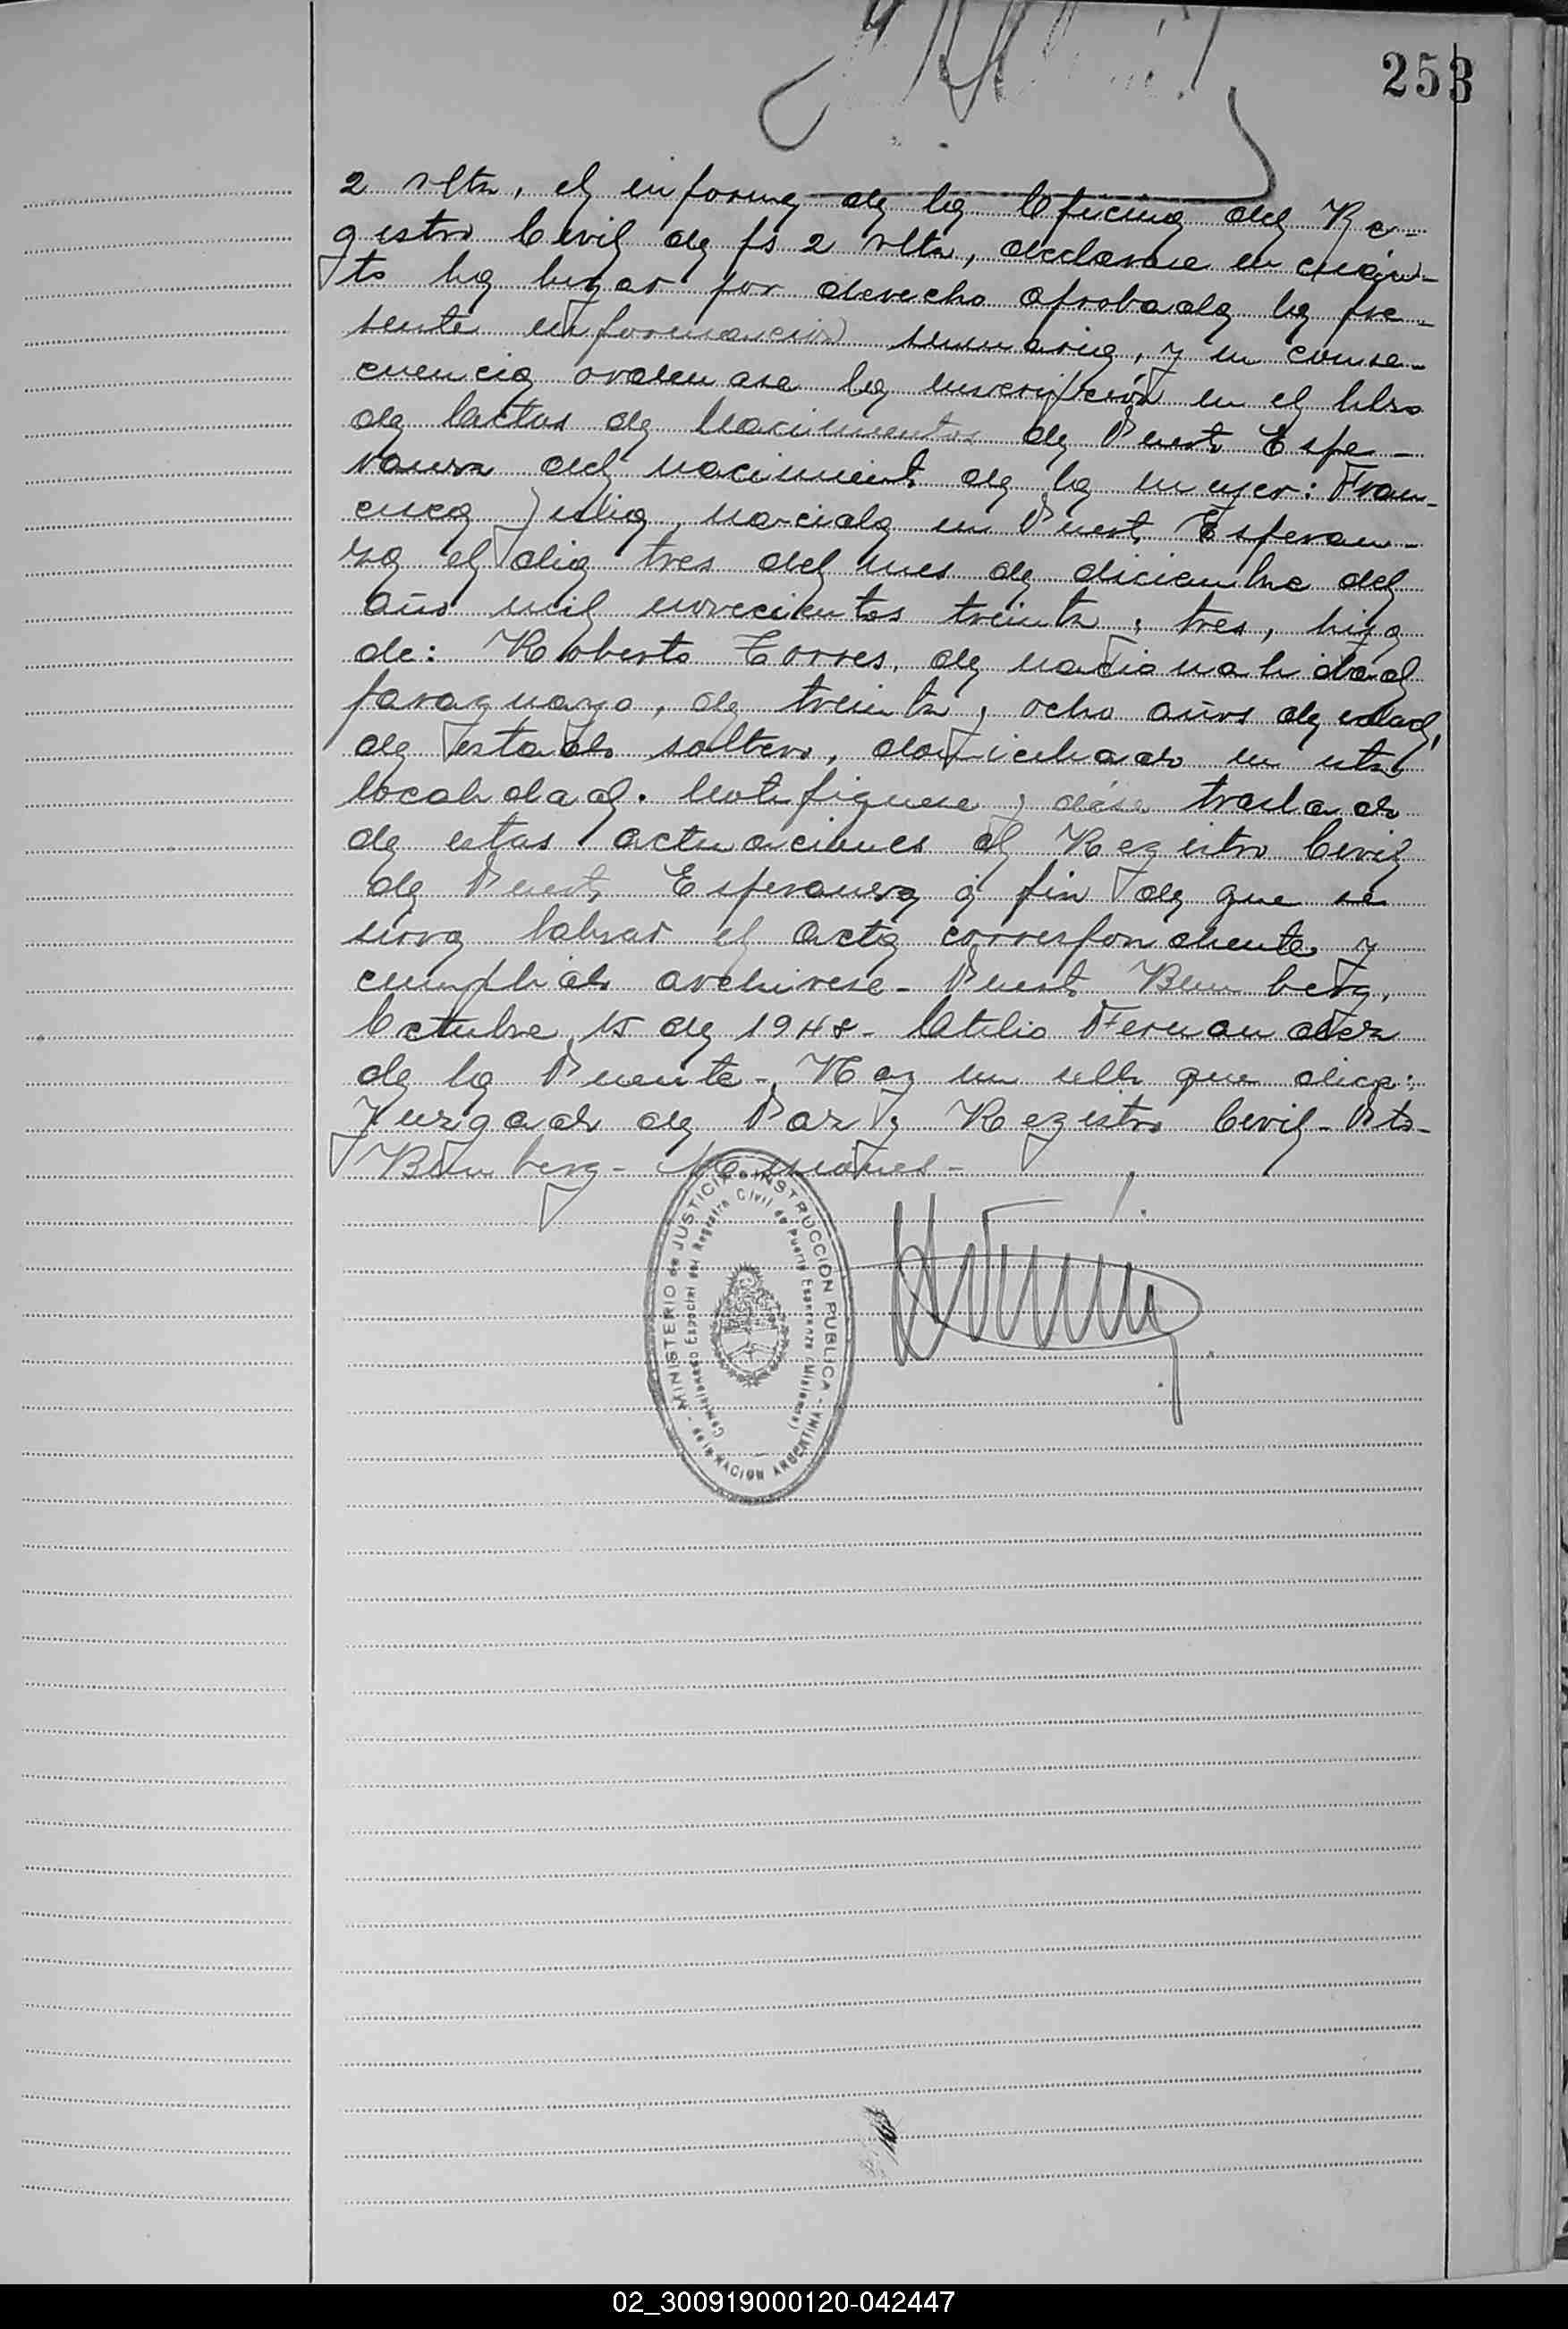 253
2 vlta, el informe de la Oficina del Re-
gistro Civil de fs 2 vlta, declarase en cuán-
to ha lugar por derecho aprobada la pre-
sente información sumaria, y en conse-
cuencia ordenase la inscripción en el libro
de Actas de Nacimientos de Puerto Espe-
ranza del nacimiento de la mujer: Fran-
cisca Julia, nacida en Puerto Esperan-
za el dia tres del mes de diciembre del
año mil novecientos treinta y tres, hija
de: Roberto Torres, de nacionalidad
paraguayo, de treinta y ocho años de edad,
de estado soltero, domiciliado en esta
localidad. Notifiquese y dése traslado
de estas actuaciones al Registro Civil
de Puerto Esperanza á fin de que se
sirva labrar el acta correspondiente y
cumplido archivese - Puerto Bemberg,
Octubre 15 de 1948 - Atilio Fernandez
de la Puente - Hay un sello que dice:
Juzgado de Paz y Registro Civil - Pto
Bemberg - Misiones -
MINISTERIO de JUSTICIA e INSTRUCCION PUBLICA - de la NACION ARGENTINA -
Comisionado Especial del Registro Civil de Puerto Esperanza (Misiones)
02_300919000120-042447